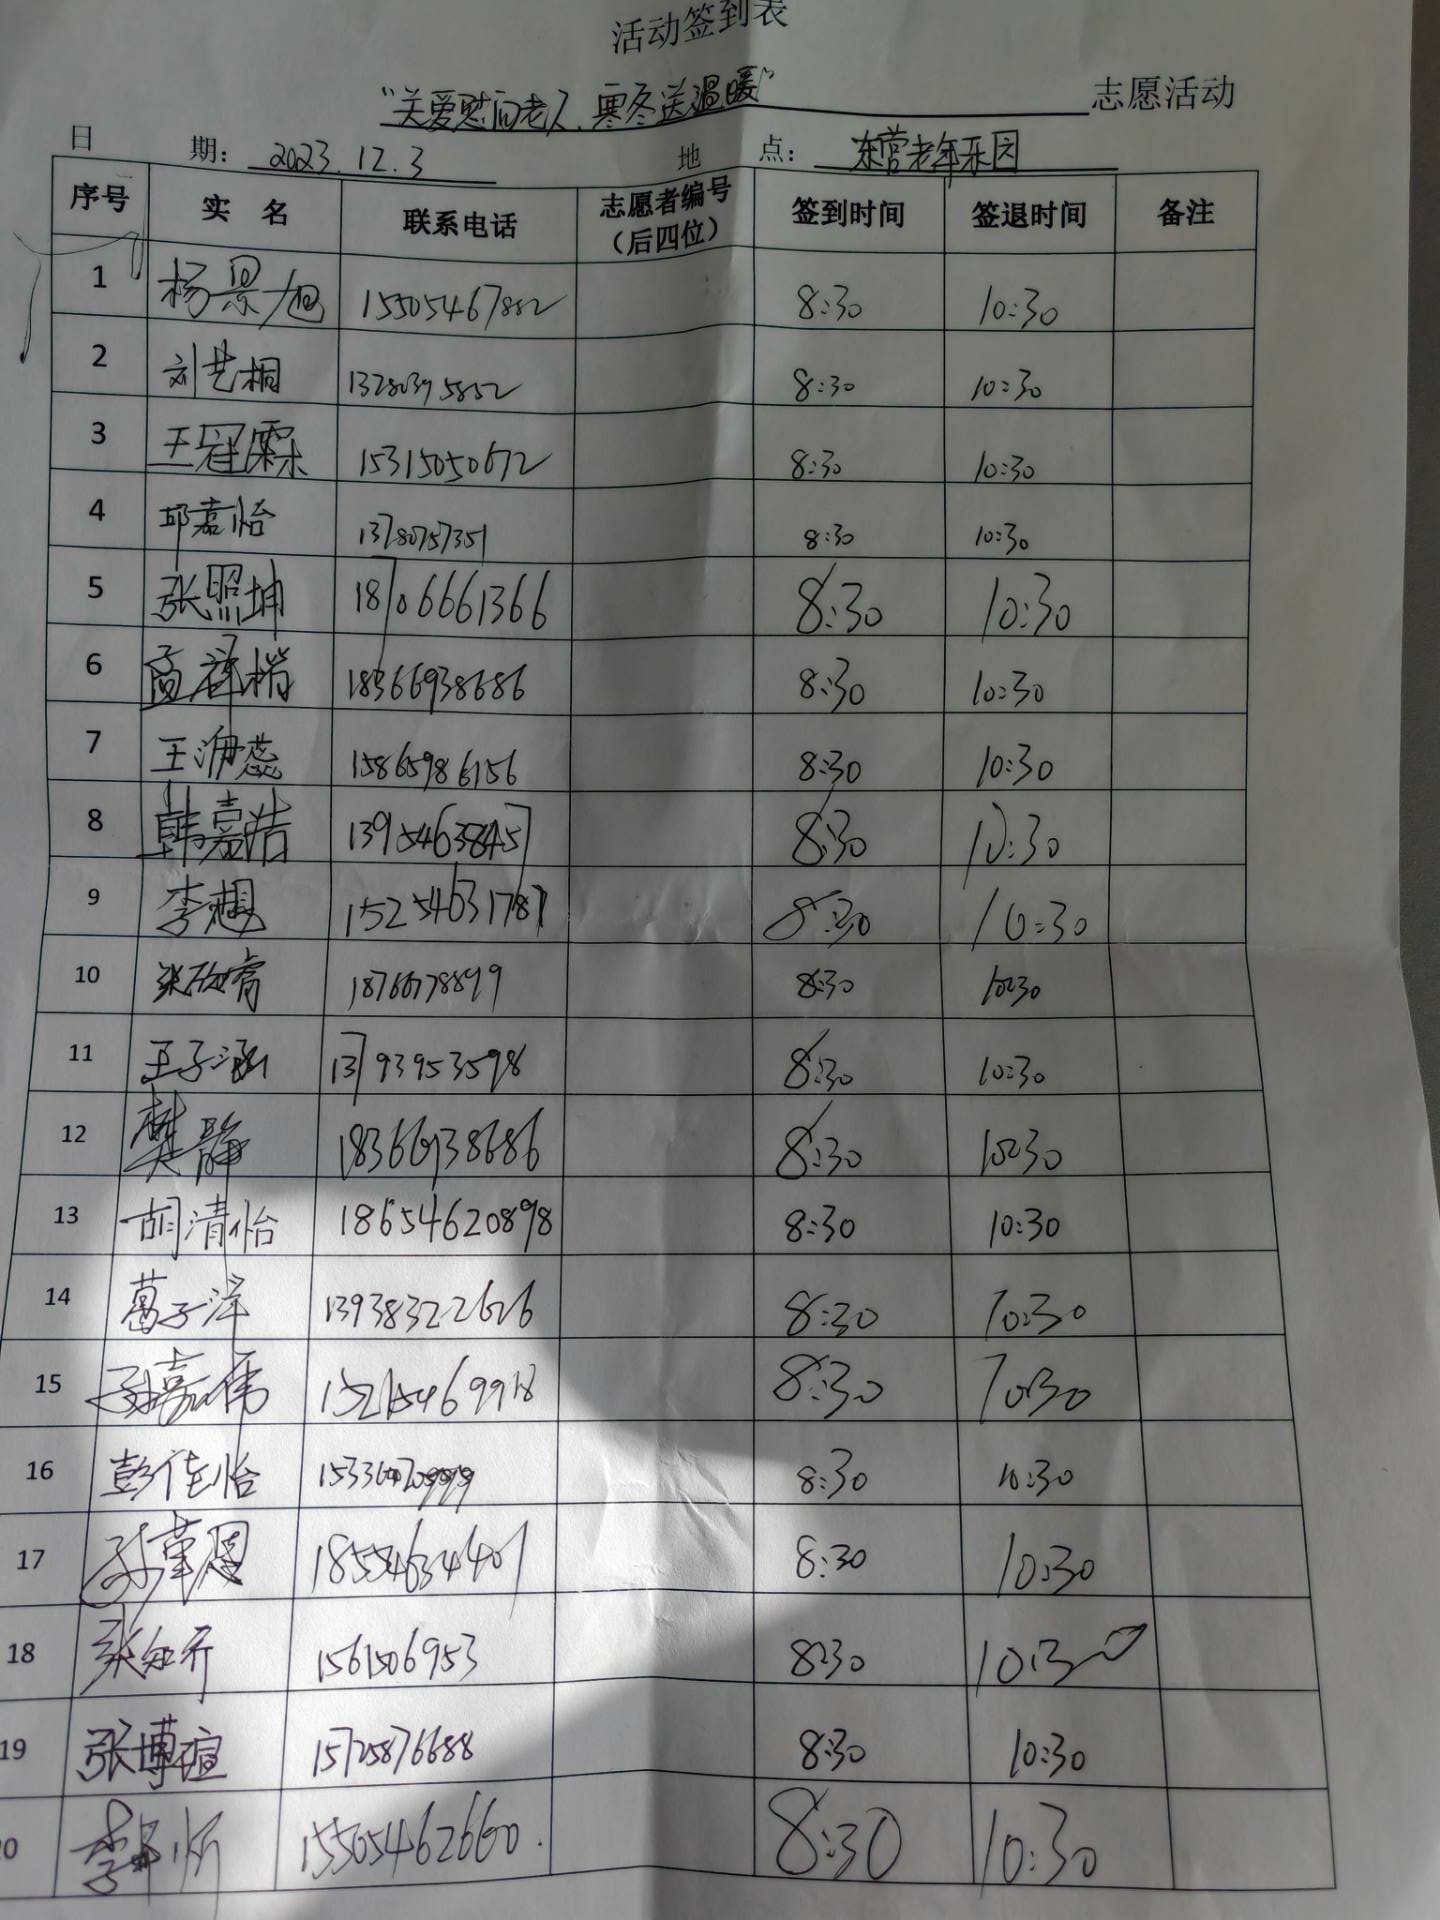 活动签到表
“关爱慰问老人、寒冬送温暖” 志愿活动
日 期： 2023.12.3 地 点： 东营老年乐园
序号 实 名 联系电话 志愿者编号（后四位） 签到时间 签退时间 备注
1 杨景旭 15505467882 8:30 10:30
2 刘艺桐 8:30 10:30
3 王冠霖 15315050672 8:30 10:30
4 邱嘉怡 13780757351 8:30 10:30
5 张照坤 18706661366 8:30 10:30
6 18366938686 8:30 10:30
7 15865986156 8:30 10:30
8 韩嘉浩 8:30 10:30
9 李想 15254631787 8:30 10:30
10 8:30 10:30
11 王子涵 13793953598 8:30 10:30
12 樊静 18366938686 8:30 10:30
13 胡清怡 18654620898 8:30 10:30
14 葛子洋 13938322626 8:30 10:30
15 孙嘉伟 8:30 10:30
16 彭佳怡 8:30 10:30
17 18554634401 8:30 10:30
18 张知乔 1561506953 8:30 10:30
19 张博瑄 15725876688 8:30 10:30
20 15505462660. 8:30 10:30